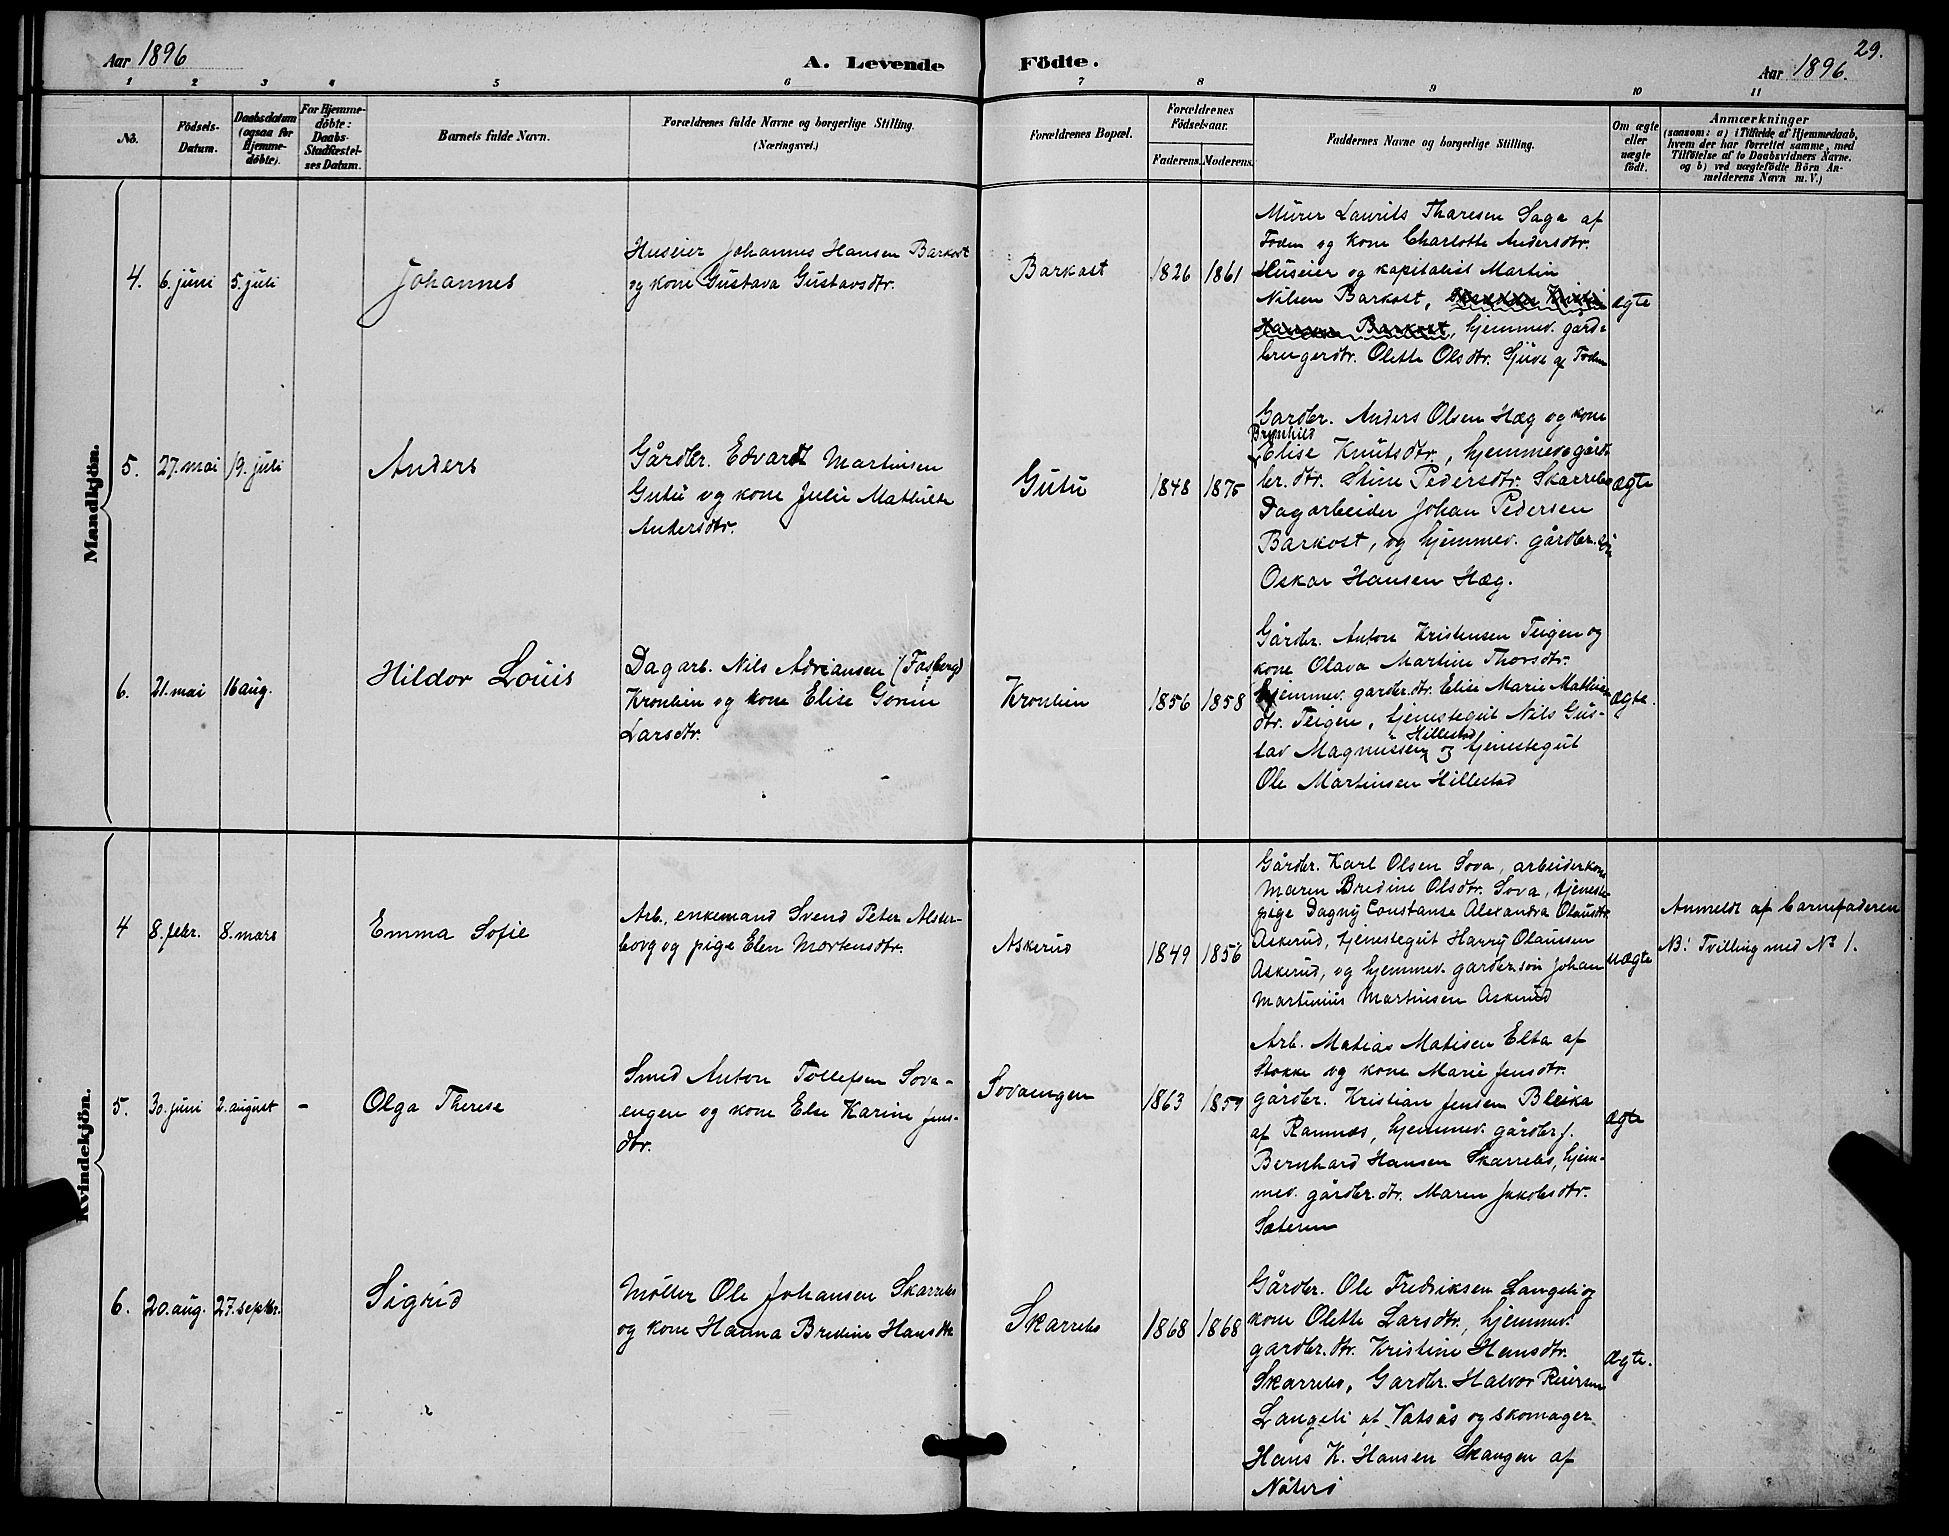 Aar 1896
A. Levende Födte.
Aar 1896.
29.
1 2 3 4 5 6 7 8 9 10 11
No.
Födsels-Datum.
Daabsdatum (ogsaa for Hjemme-döbte).
For Hjemme-döbte: Daabs-Stadfæstel-ses Datum.
Barnets fulde Navn.
Forældrenes fulde Navne og borgerlige Stilling.
(Næringsvei.)
Forældrenes Bopæl.
Forældrenes Födselsaar.
Faderens. Moderens.
Faddernes Navne og borgerlige Stilling.
Om ægte eller uægte födt.
Anmærkninger
(saasom: a) i Tilfælde af Hjemmedaab,
hvem der har forrettet samme, med
Tilföielse af to Daabsvidners Navne.
og b) ved uægtefödte Börn An-
melderens Navn m. V.)
Mandkjön.
4. 6. juni 5. juli
Johannes
Huseier Johannes Hansen Barkost
og kone Gustava Gustavsdtr.
Barkost
1826 1861
Murer Laurits Tharesen Saga af
Foden og kone Charlotte Andersdtr.
Huseier og kapitalist Martin
Nilsen Barkost,
Hansen Barkost, hjemmev. gard-
brugerdtr. Olette Olsdtr. af
ægte
5. 27. mai 19. juli
Anders
Gårdbr. Edvardt Martinsen
Gutu og kone Julie Mathilde
Andersdtr.
Gutu
1848 1875
Gardbr. Anders Olsen Hæg og kone
Brynhild
Elise Knutsdtr., hjemmev. gård-
br. dtr. Stine Pedersdtr. Skarrebo
Dagarbeider Johan Pedersen
Barkost, og hjemmev. gårdbr. sön
Oskar Hansen Hæg.
ægte
6. 21. mai 16 aug.
Hildor Louis
Dagarb. Nils Adriansen (Fosberg)
Kronlien og kone Elise Gorine
Larsdtr.
Kronlien
1856 1858
Gårdbr. Anton Kristensen Teigen og
kone Olava Martine Thorsdtr.
hjemmev. gardbr. dtr. Elise Marie Mathias
dtr. Teigen, tjenestegut Nils Gus-
Hillestad
tav Magnussen og tjenestegut
Ole Martinsen Hillestad
ægte.
Kvindekjön.
4 8. febr. 8. mars
Emma Sofie
Arb. enkemand Svend Peter Alster-
borg og pige Elen Mortensdtr.
Askerud
1849 1856
Gårdbr. Karl Olsen Sova, arbeiderkone
Maren Bredine Olsdtr. Sova, tjeneste-
pige Dagny Constanse Alexandra Olausdtr.
Askerud, tjenestegut Harry Olaussen
Askerud, og hjemmev. gardbr. sön Johan
Martinius Martinsen Askerud
uægte
Anmeldt af barnefaderen
NB: Tvilling med No 1.
5. 30. juni 2. august -
Olga Therese
Smed Anton Tollefsen Sova-
engen og kone Else Karine Jens-
dtr.
Sovaengen
1863 1859
Arb. Matias Matisen Elta af
Stokke og kone Marie Jensdtr.
gårdbr. Kristian Jensen Bleika
af Ramnæs, hjemmev. gårdbr. s.
Bernhard Hansen Skarrebo, hjem-
mev. gårdbr. dtr. Maren Jakobsdtr.
Sæteren
ægte
6. 20. aug. 27. septbr.
Sigrid
Möller Ole Johansen Skarrebo
og kone Hanna Bredine Hansdtr
Skarrebo
1868 1868
Gårdbr. Ole Fredriksen Langeli og
kone Olette Larsdtr., hjemmev.
gardbr. dtr. Kristine Hansdtr.
Skarrebo, Gardbr. Halvor Reiersen
Langeli af Vatsås og skomager
Hans K. Hansen Skaugen af
Nöterö
ægte.